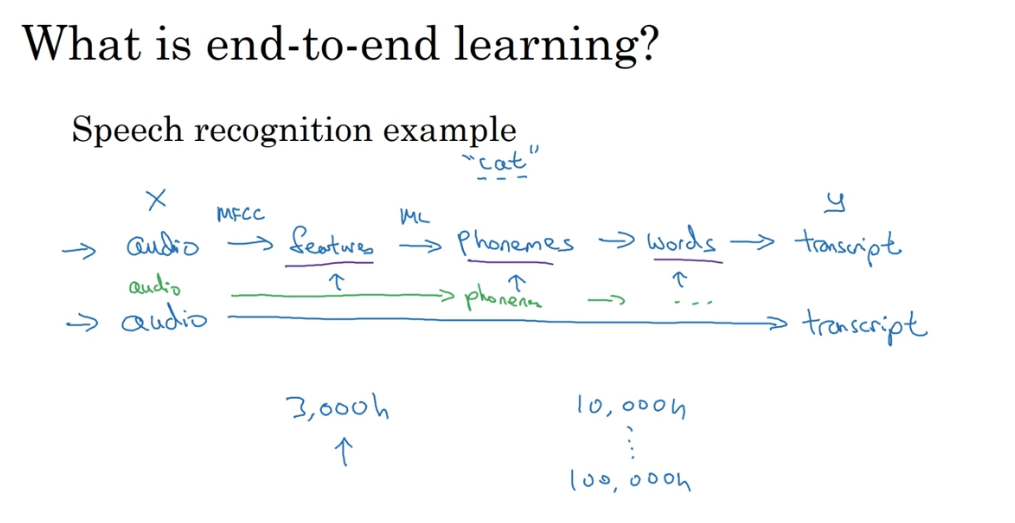 What is end-to-end learning?
Speech recognition example
"cat"
X MFCC ML y
→ audio → features → Phonemes → words → transcript
↑ ↑ ↑
audio → phonemes → ...
→ audio → transcript
3,000h 10,000h
↑ ⋮
100,000h